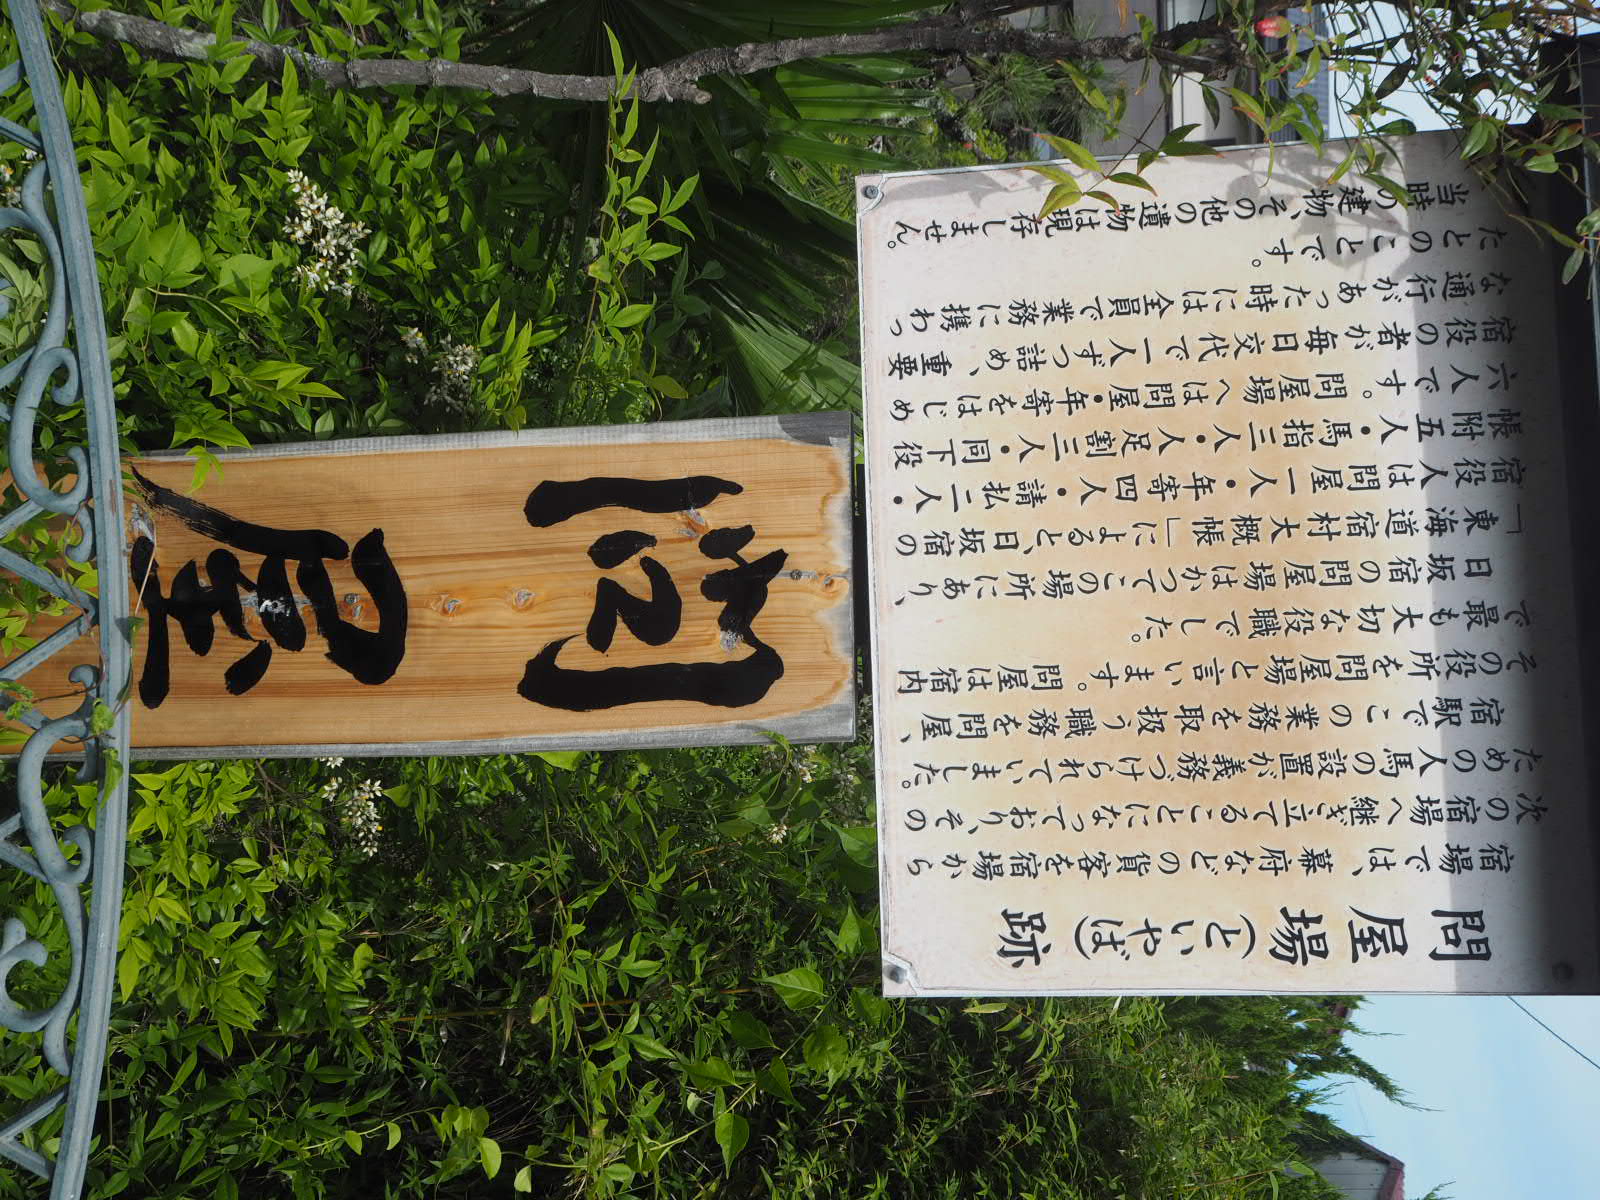 問屋場(といやば)跡
宿場では、幕府などの貨客を宿場から
次の宿場へ継ぎ立てることになっており、その
ための人馬の設置が義務づけられていました。
宿駅でこの業務を取扱う職務を問屋、
その役所を問屋場と言います。問屋は宿内
で最も大切な役職でした。
日坂宿の問屋場はかつてこの場所にあり、
「東海道宿村大概帳」によると、日坂宿の
宿役人は問屋一人・年寄四人・請払二人・
帳附五人・馬指三人・人足割三人・同下役
六人です。問屋場へは問屋・年寄をはじめ
宿役の者が毎日交代で一人ずつ詰め、重要
な通行があった時には全員で業務に携わっ
たとのことです。
当時の建物、その他の遺物は現存しません。
問屋